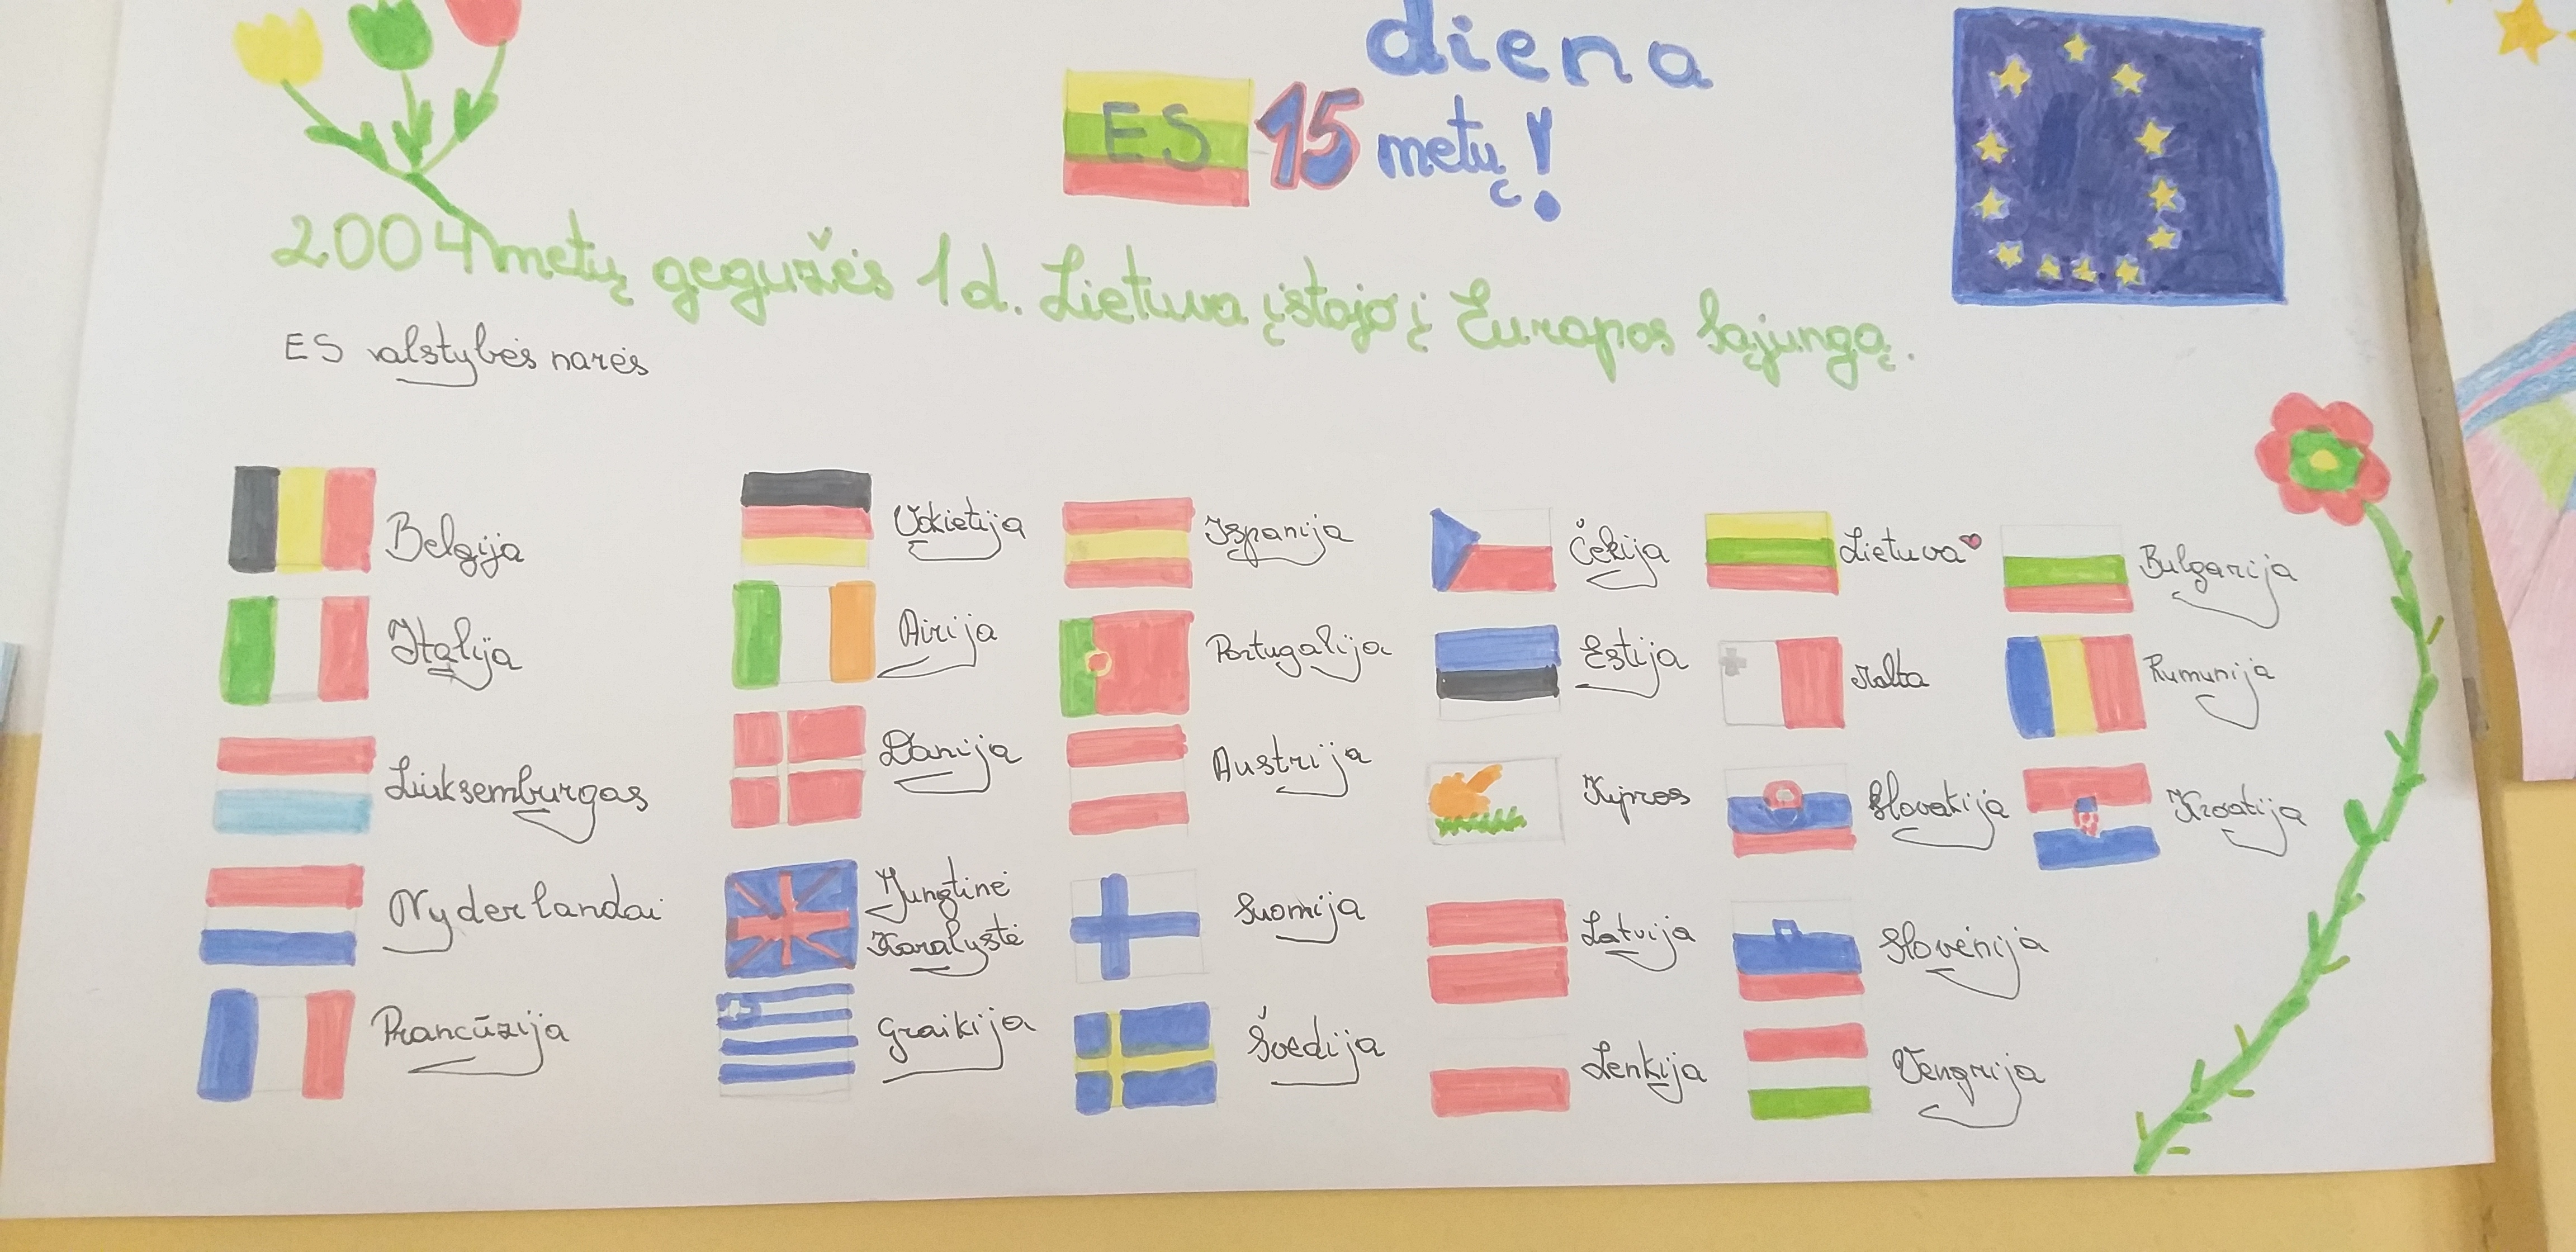 diena
ES 15 metų!
2004 metų gegužės 1d. Lietuva įstojo į Europos Sąjungą.
ES valstybės narės
Belgija
Italija
Liuksemburgas
Nyderlandai
Prancūzija
Vokietija
Airija
Danija
Jungtinė
Karalystė
Graikija
Ispanija
Portugalija
Austrija
Suomija
Švedija
Čekija
Estija
Kipras
Latvija
Lenkija
Lietuva
Malta
Slovakija
Slovėnija
Vengrija
Bulgarija
Rumunija
Kroatija